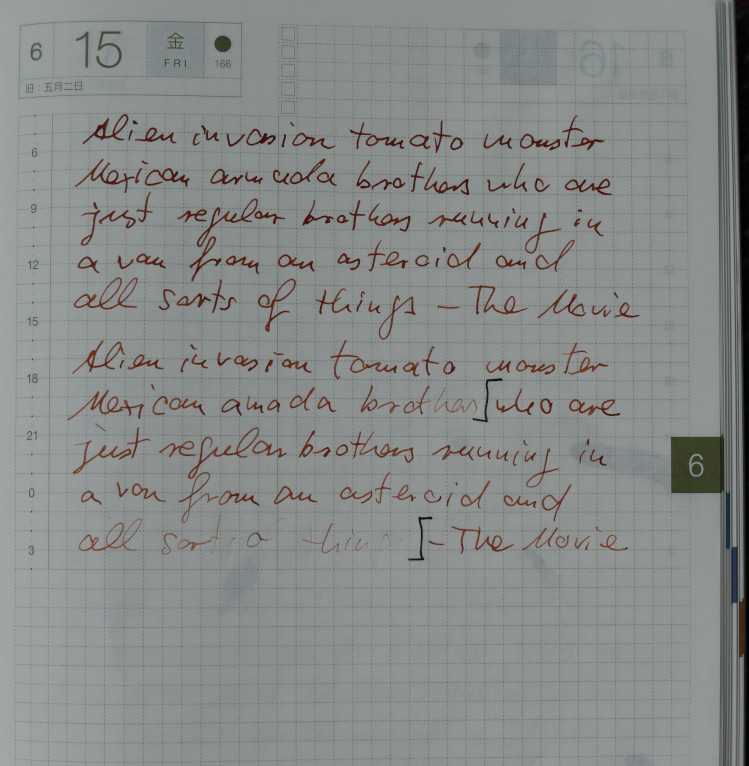 6 15 金 FRI 166
旧：五月二日
Alien invasion tomato monster
6
Mexican armada brothers who are
9
just regular brothers running in
12
a van from an asteroid and
all sorts of things - The Movie
15
Alien invasion tomato monster
18
Mexican amada brothers] who are
21
just regular brothers running in
6
0
a van from an asteroid and
all sorts of thin ] - The Movie
3